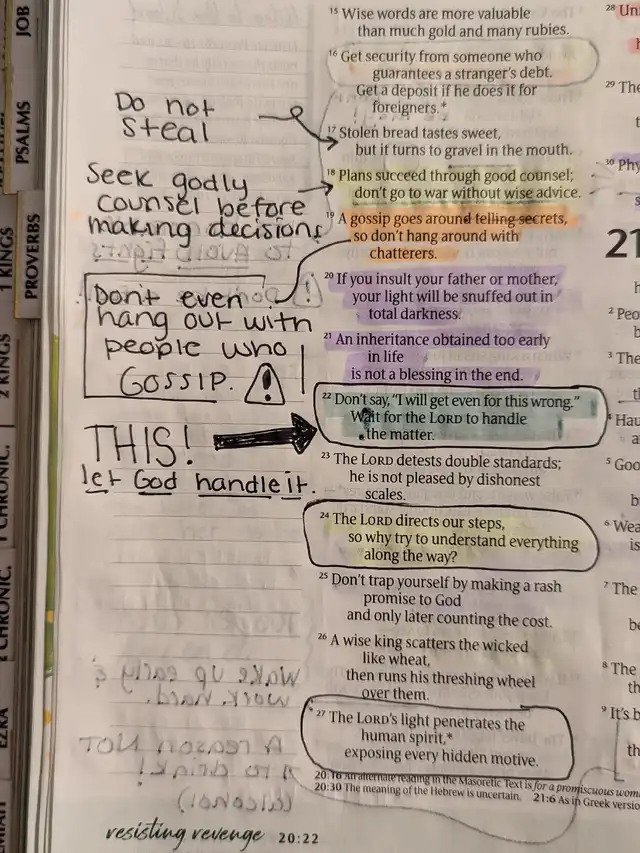 JOB
PSALMS
PROVERBS
1 KINGS
2 KINGS
1 CHRONIC.
CHRONIC.
EZRA
Do not
steal
Seek godly
counsel before
making decisions
Don't even
hang out with
people who
GOSSIP.
THIS!
let God handle it.
15 Wise words are more valuable
than much gold and many rubies.
16 Get security from someone who
guarantees a stranger's debt.
Get a deposit if he does it for
foreigners.*
17 Stolen bread tastes sweet,
but it turns to gravel in the mouth.
18 Plans succeed through good counsel;
don't go to war without wise advice.
19 A gossip goes around telling secrets,
so don't hang around with
chatterers.
20 If you insult your father or mother,
your light will be snuffed out in
total darkness.
21 An inheritance obtained too early
in life
is not a blessing in the end.
22 Don't say, "I will get even for this wrong."
Wait for the LORD to handle
the matter.
23 The LORD detests double standards;
he is not pleased by dishonest
scales.
24 The LORD directs our steps,
so why try to understand everything
along the way?
25 Don't trap yourself by making a rash
promise to God
and only later counting the cost.
26 A wise king scatters the wicked
like wheat,
then runs his threshing wheel
over them.
27 The LORD's light penetrates the
human spirit,*
exposing every hidden motive.
20:16 An alternate reading in the Masoretic Text is for a promiscuous
20:30 The meaning of the Hebrew is uncertain. 21:6 As in Greek
resisting revenge 20:22
28
29 The
30
21
2
3 The
4
5
6
is
7 The
8 The
9 It's